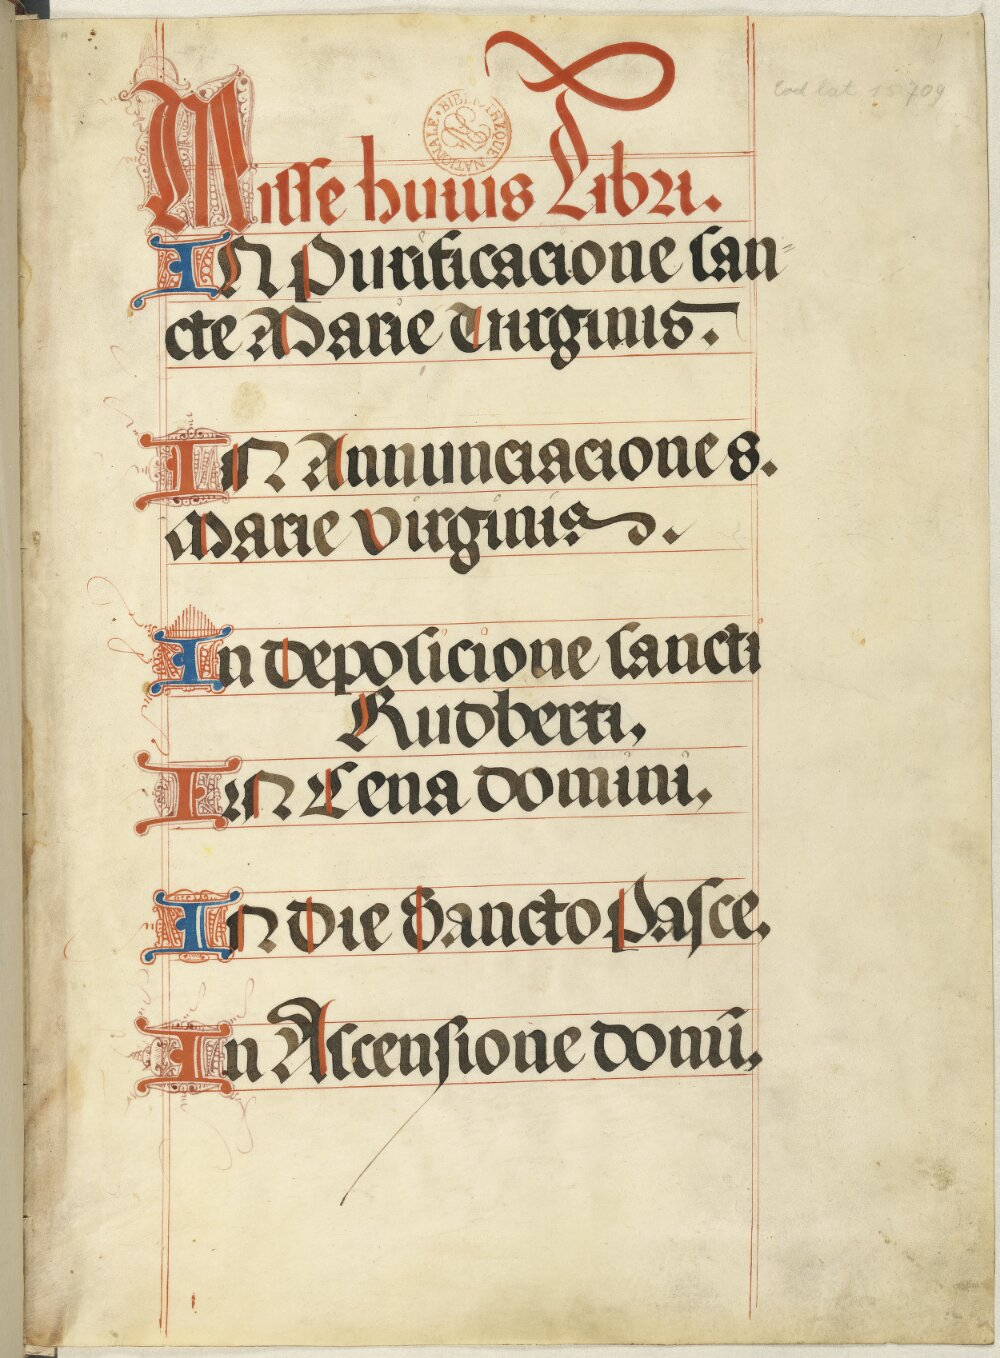 Cod lat 15709
BIBLIOTHEQUE NATIONALE
Misse huius Libri.
IN Purificacione san-
cte Marie Virginis.
IN Annunciacione s.
Marie Virginis.
In deposicione sancti
Rudberti,
IN Cena domini,
IN die Sancto Pasce,
In Ascensione domī,